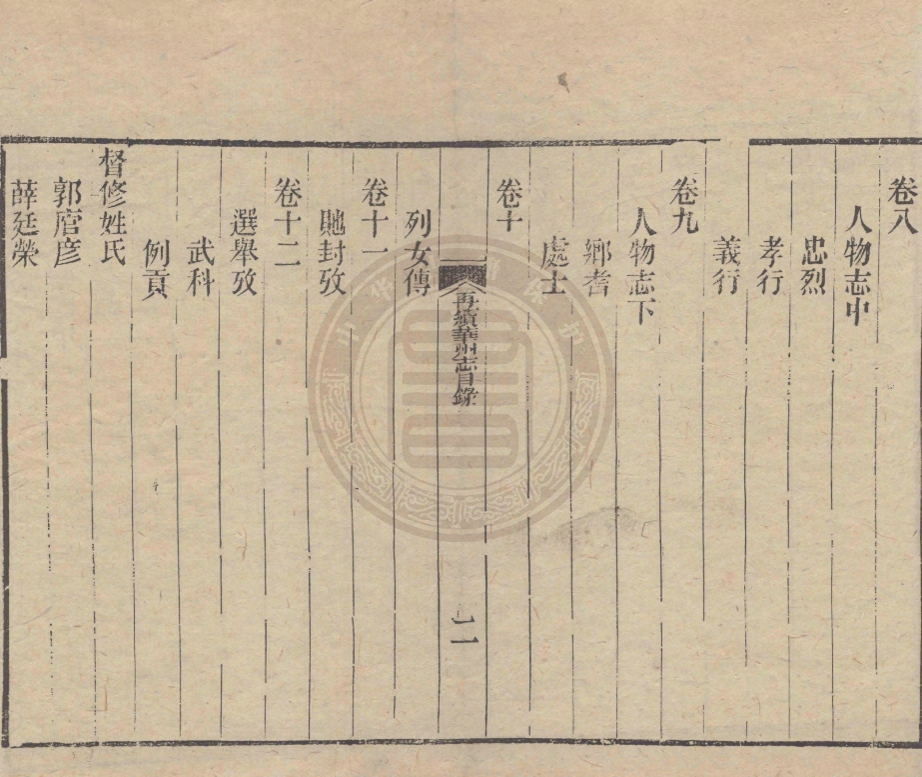 卷八
人物志中
忠烈
孝行
義行
卷九
人物志下
鄉耆
處士
卷十
再續華州志目錄
二
列女傳
卷十一
貤封攷
卷十二
選舉攷
武科
例貢
督修姓氏
郭庽彦
薛廷榮